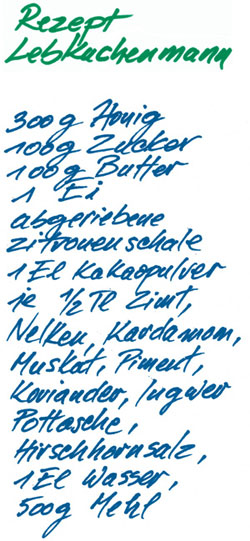 Rezept
Lebkuchenmann
300g Honig
100g Zucker
100g Butter
1 Ei
abgeriebene
zitronenschale
1 El Kakaopulver
je 1/2 Tl Zimt,
Nelken, Kardamom,
Muskat, Piment,
Koriander, Ingwer
Pottasche,
Hirschhornsalz,
1 El Wasser,
500g Mehl